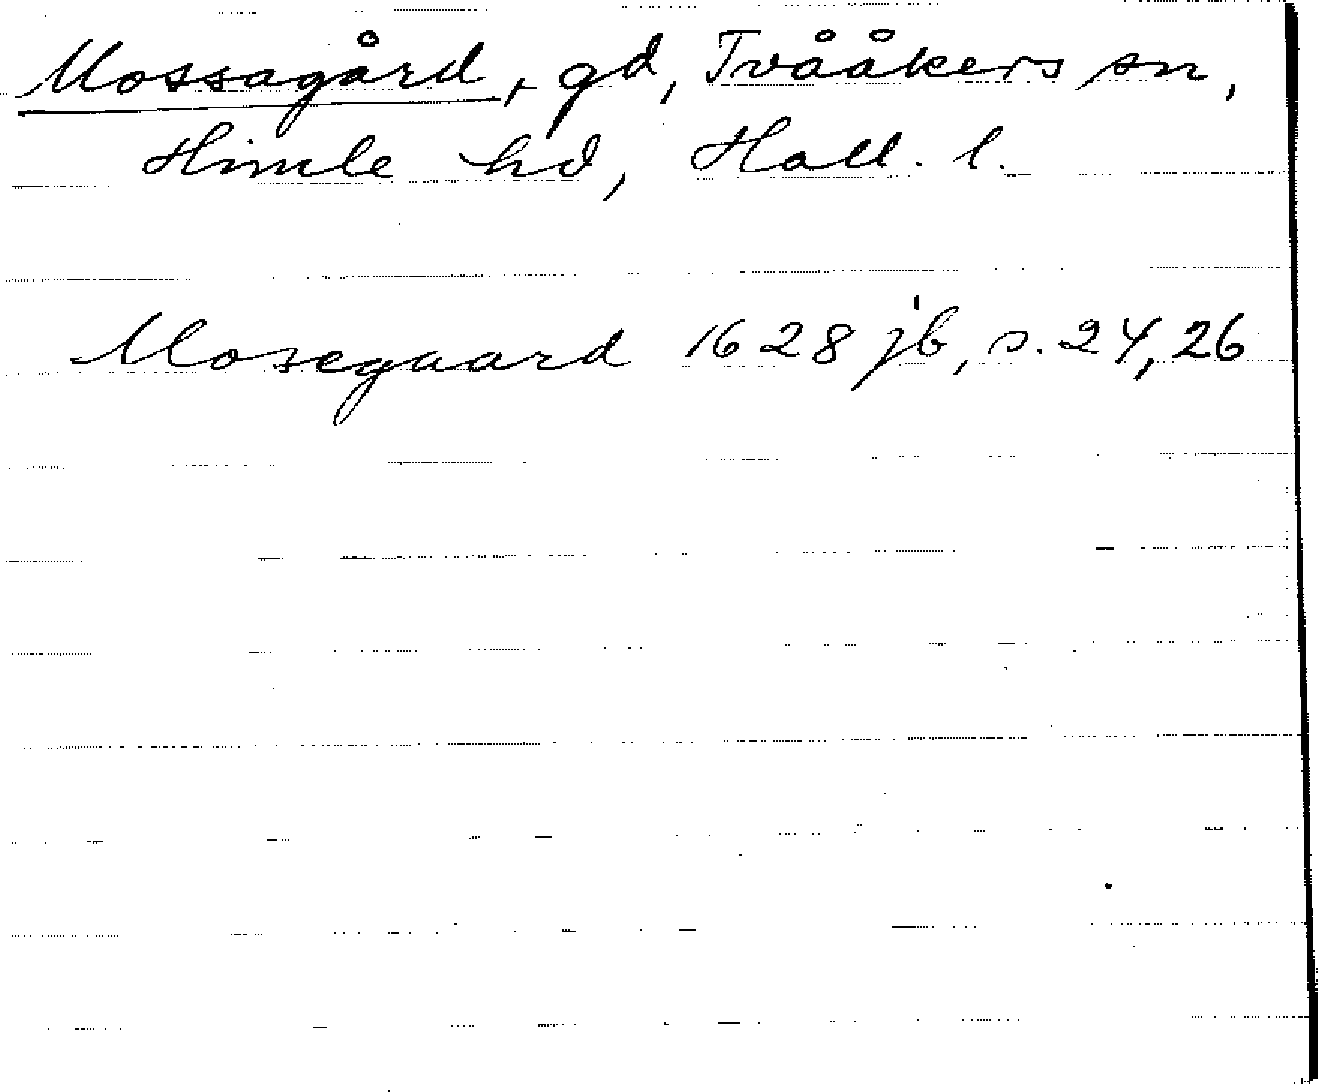 Mossagård, gd, Tvååkers sn,
Himle hd, Hall. l.
Mosegaard 1628 jb, s. 24, 26